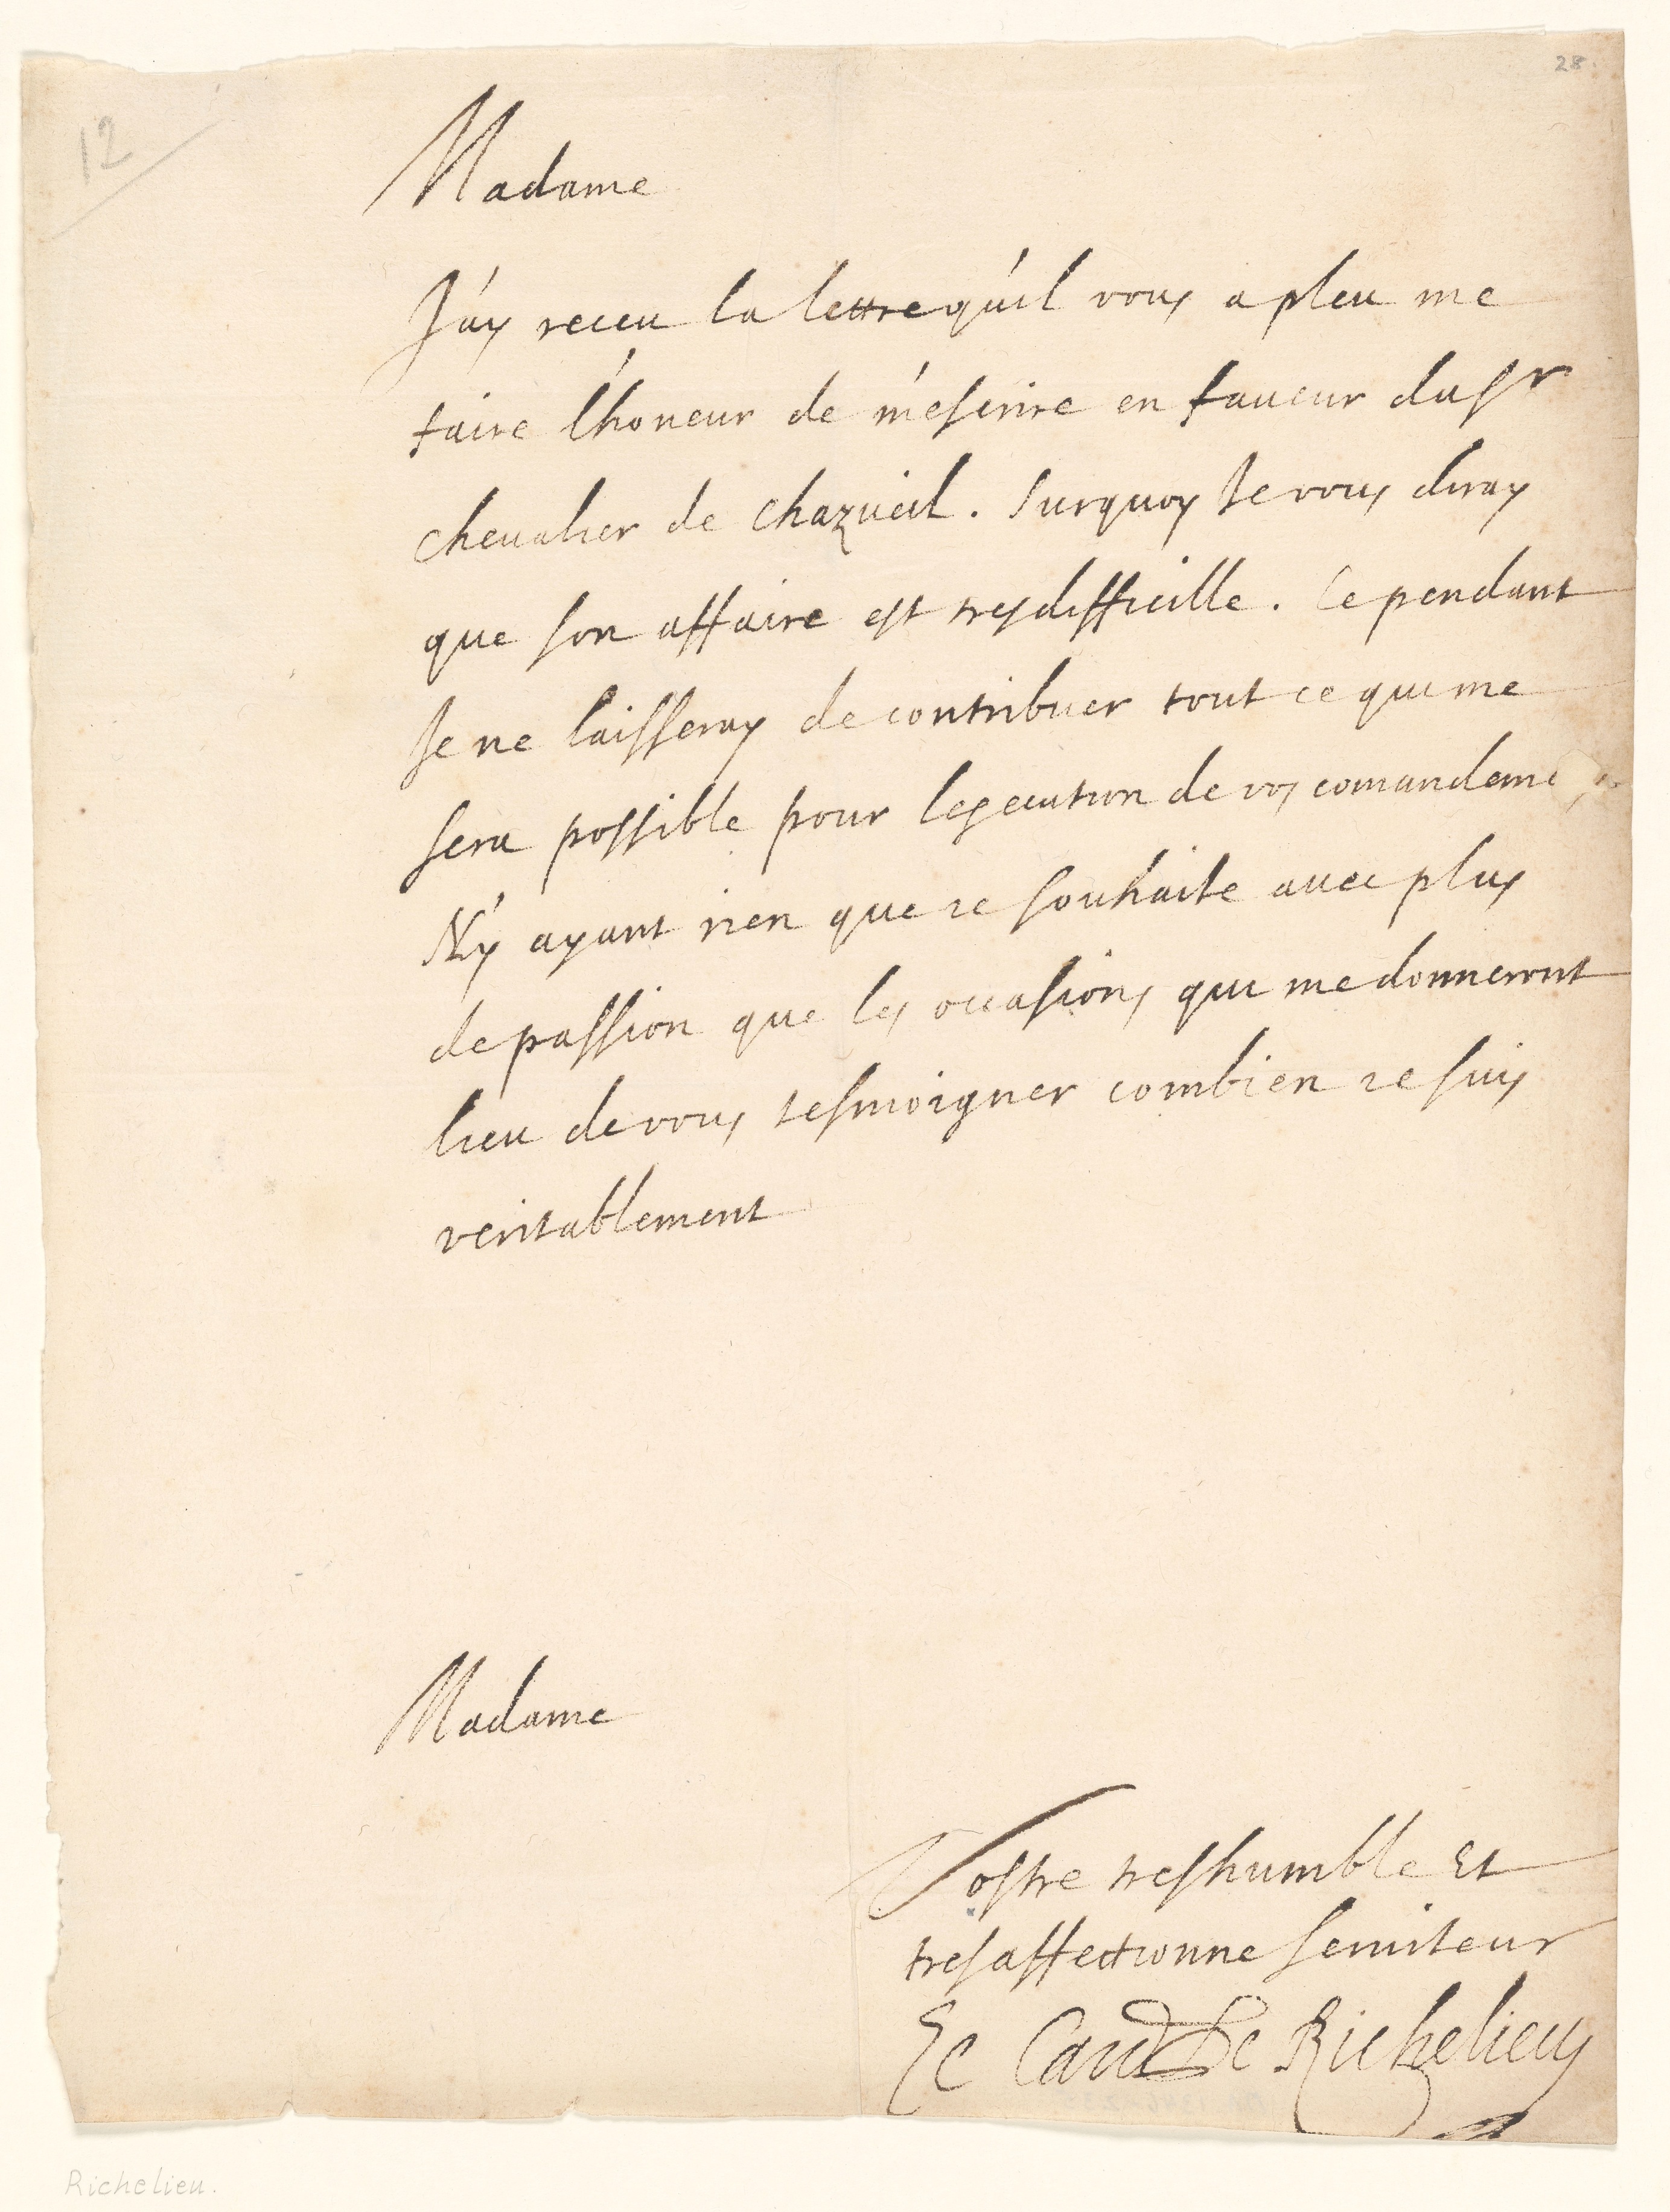 28.
12
Madame
J'ay receu la lettre qu'il vous a pleu me
faire l'honeur de m'escrire en faueur du sr
cheualier de Chazueil. Surquoy Je vous diray
que son affaire est tres difficille. Cependant
Je ne laisseray de contribuer tout ce qui me
sera possible pour lexecution de vos comandeme
N'y ayant rien que ie souhaite auec plus
de passion que les occasions qui me donneront
lieu de vous tesmoigner combien ie suis
veritablement
Madame
Vostre treshumble Et
tresaffectionne seruiteur
Le Card De Richelieu
Richelieu.